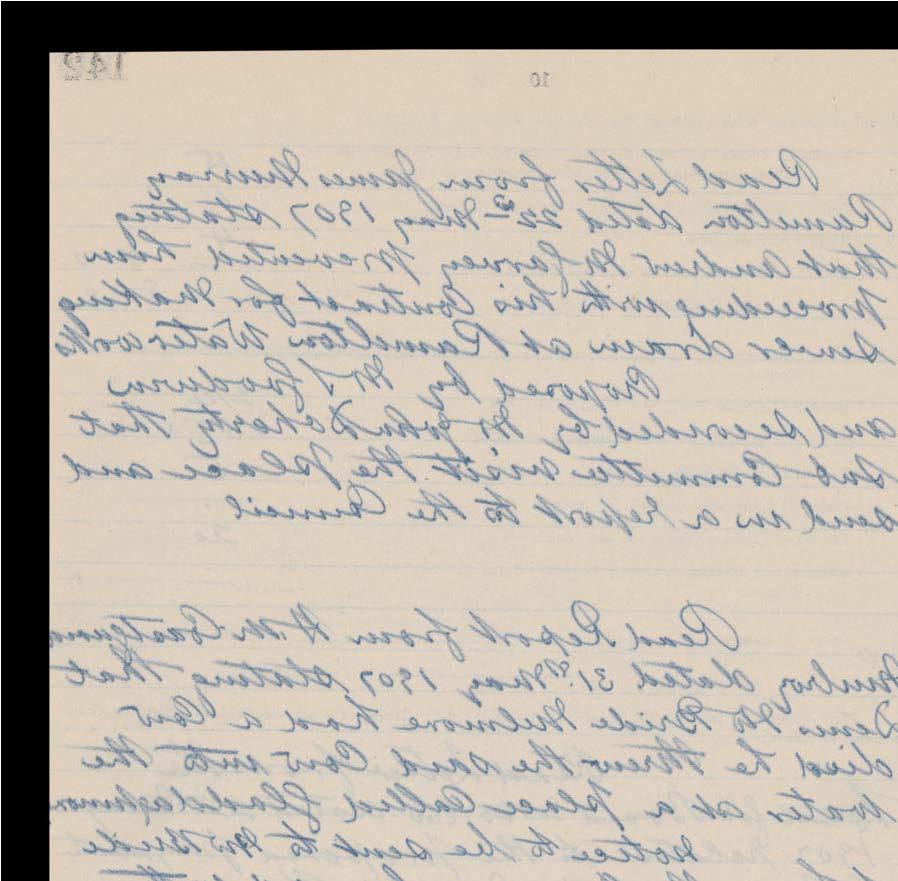 142
10
Read Letter from James Murray
Ramelton dated 22nd May 1907 stating
that Andrew McGarvey prevented him
proceeding with his Contract for Making
sewer drain at Ramelton Waterworks
Proposed by Mr J Goodwin
and seconded by Mr John Doherty that
Sub Committee visit the place and
send in a report to the Council
Read Report from H.M. Coastguard
Mulroy dated 31st May 1907 stating that
Denis McBride Gulmore had a Cow
died he threw the said Cow into the
water at a place Called
Notice to be sent to McBride